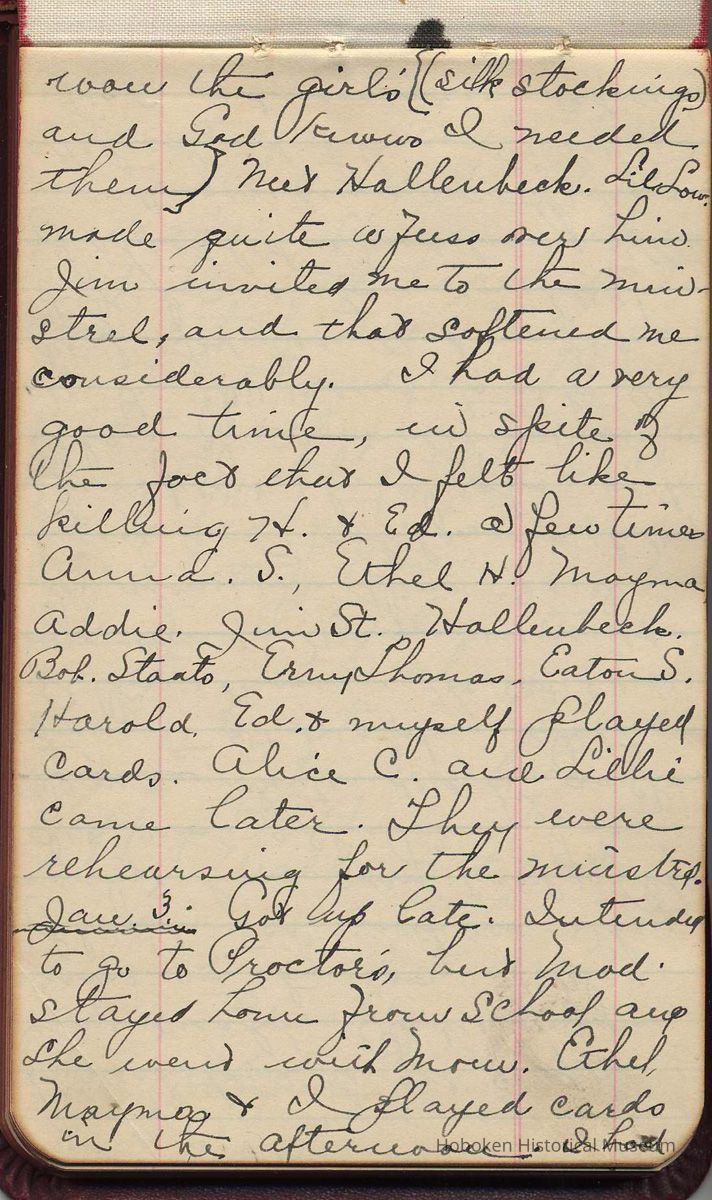 won the girls' {(silk stockings)
and God knows I needed
them} Met Hallenbeck. Lil Low.
made quite a fuss over him
Jim invited me to the min-
strel, and that softened me
considerably. I had a very
good time, in spite of
the fact that I felt like
killing H. & Ed. a few times
Anna. S., Ethel H. Mayma
Addie. Jim St., Hallenbeck.
Bob. Staats, Erny Thomas, Eaton S.
Harold, Ed. & myself played
cards. Alice C. and Lillie
came later. They were
rehearsing for the minstrel.
Jan. 3. Got up late. Intended
to go to Proctor's, but Mad.
stayed home from school and
she went with Mom. Ethel,
Mayma & I played cards
in the afternoon. I had
Hoboken Historical Museum